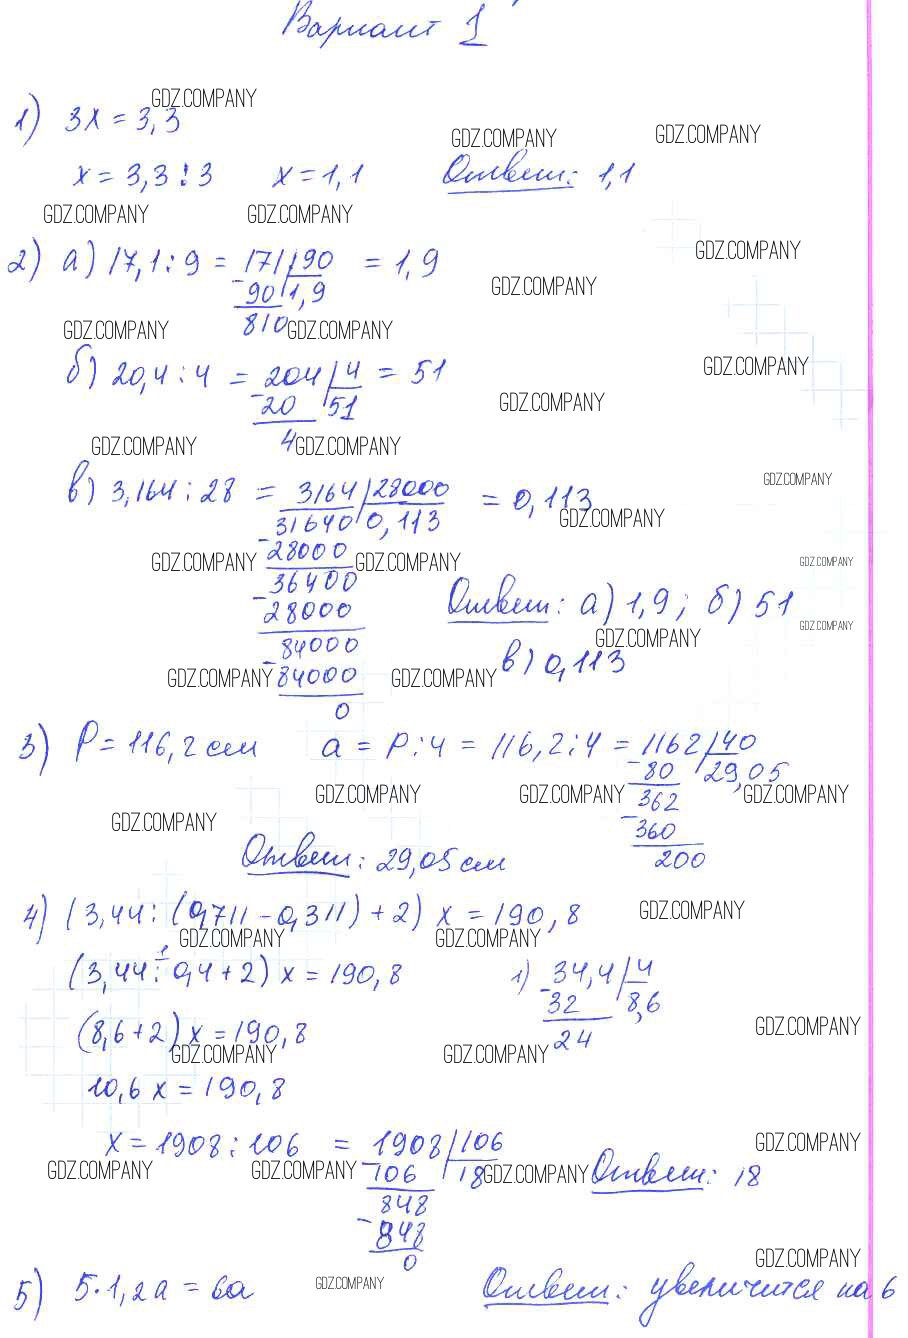 Вариант 1
GDZ.COMPANY
1) 3x = 3,3
GDZ.COMPANY GDZ.COMPANY
x = 3,3 : 3 x = 1,1 Ответ: 1,1
GDZ.COMPANY GDZ.COMPANY
GDZ.COMPANY
2) а) 17,1 : 9 = 171 | 90 = 1,9
- 90 | 1,9 GDZ.COMPANY
810
GDZ.COMPANY GDZ.COMPANY
GDZ.COMPANY
б) 20,4 : 4 = 204 | 4 = 51
- 20 | 51 GDZ.COMPANY
4
GDZ.COMPANY GDZ.COMPANY
GDZ.COMPANY
в) 3,164 : 28 = 3164 | 28000 = 0,113
31640 | 0,113 GDZ.COMPANY
- 28000
GDZ.COMPANY GDZ.COMPANY GDZ.COMPANY
36400
- 28000 Ответ: а) 1,9; б) 51
GDZ.COMPANY
GDZ.COMPANY
84000
- 84000 в) 0,113
GDZ.COMPANY GDZ.COMPANY
0
3) P = 116,2 см a = P : 4 = 116,2 : 4 = 1162 | 40
- 80 | 29,05
GDZ.COMPANY GDZ.COMPANY GDZ.COMPANY
362
GDZ.COMPANY
- 360
200
Ответ: 29,05 см
4) (3,44 : (0,711 - 0,311) + 2) x = 190,8 GDZ.COMPANY
GDZ.COMPANY GDZ.COMPANY
1
(3,44 : 0,4 + 2) x = 190,8 1) 34,4 | 4
- 32 | 8,6
24
(8,6 + 2) x = 190,8 GDZ.COMPANY
GDZ.COMPANY GDZ.COMPANY
10,6 x = 190,8
x = 1908 : 106 = 1908 | 106 GDZ.COMPANY
- 106 | 18 Ответ: 18
GDZ.COMPANY GDZ.COMPANY GDZ.COMPANY
848
- 848
0
GDZ.COMPANY
5) 5 · 1,2a = 6a GDZ.COMPANY Ответ: увеличится на 6